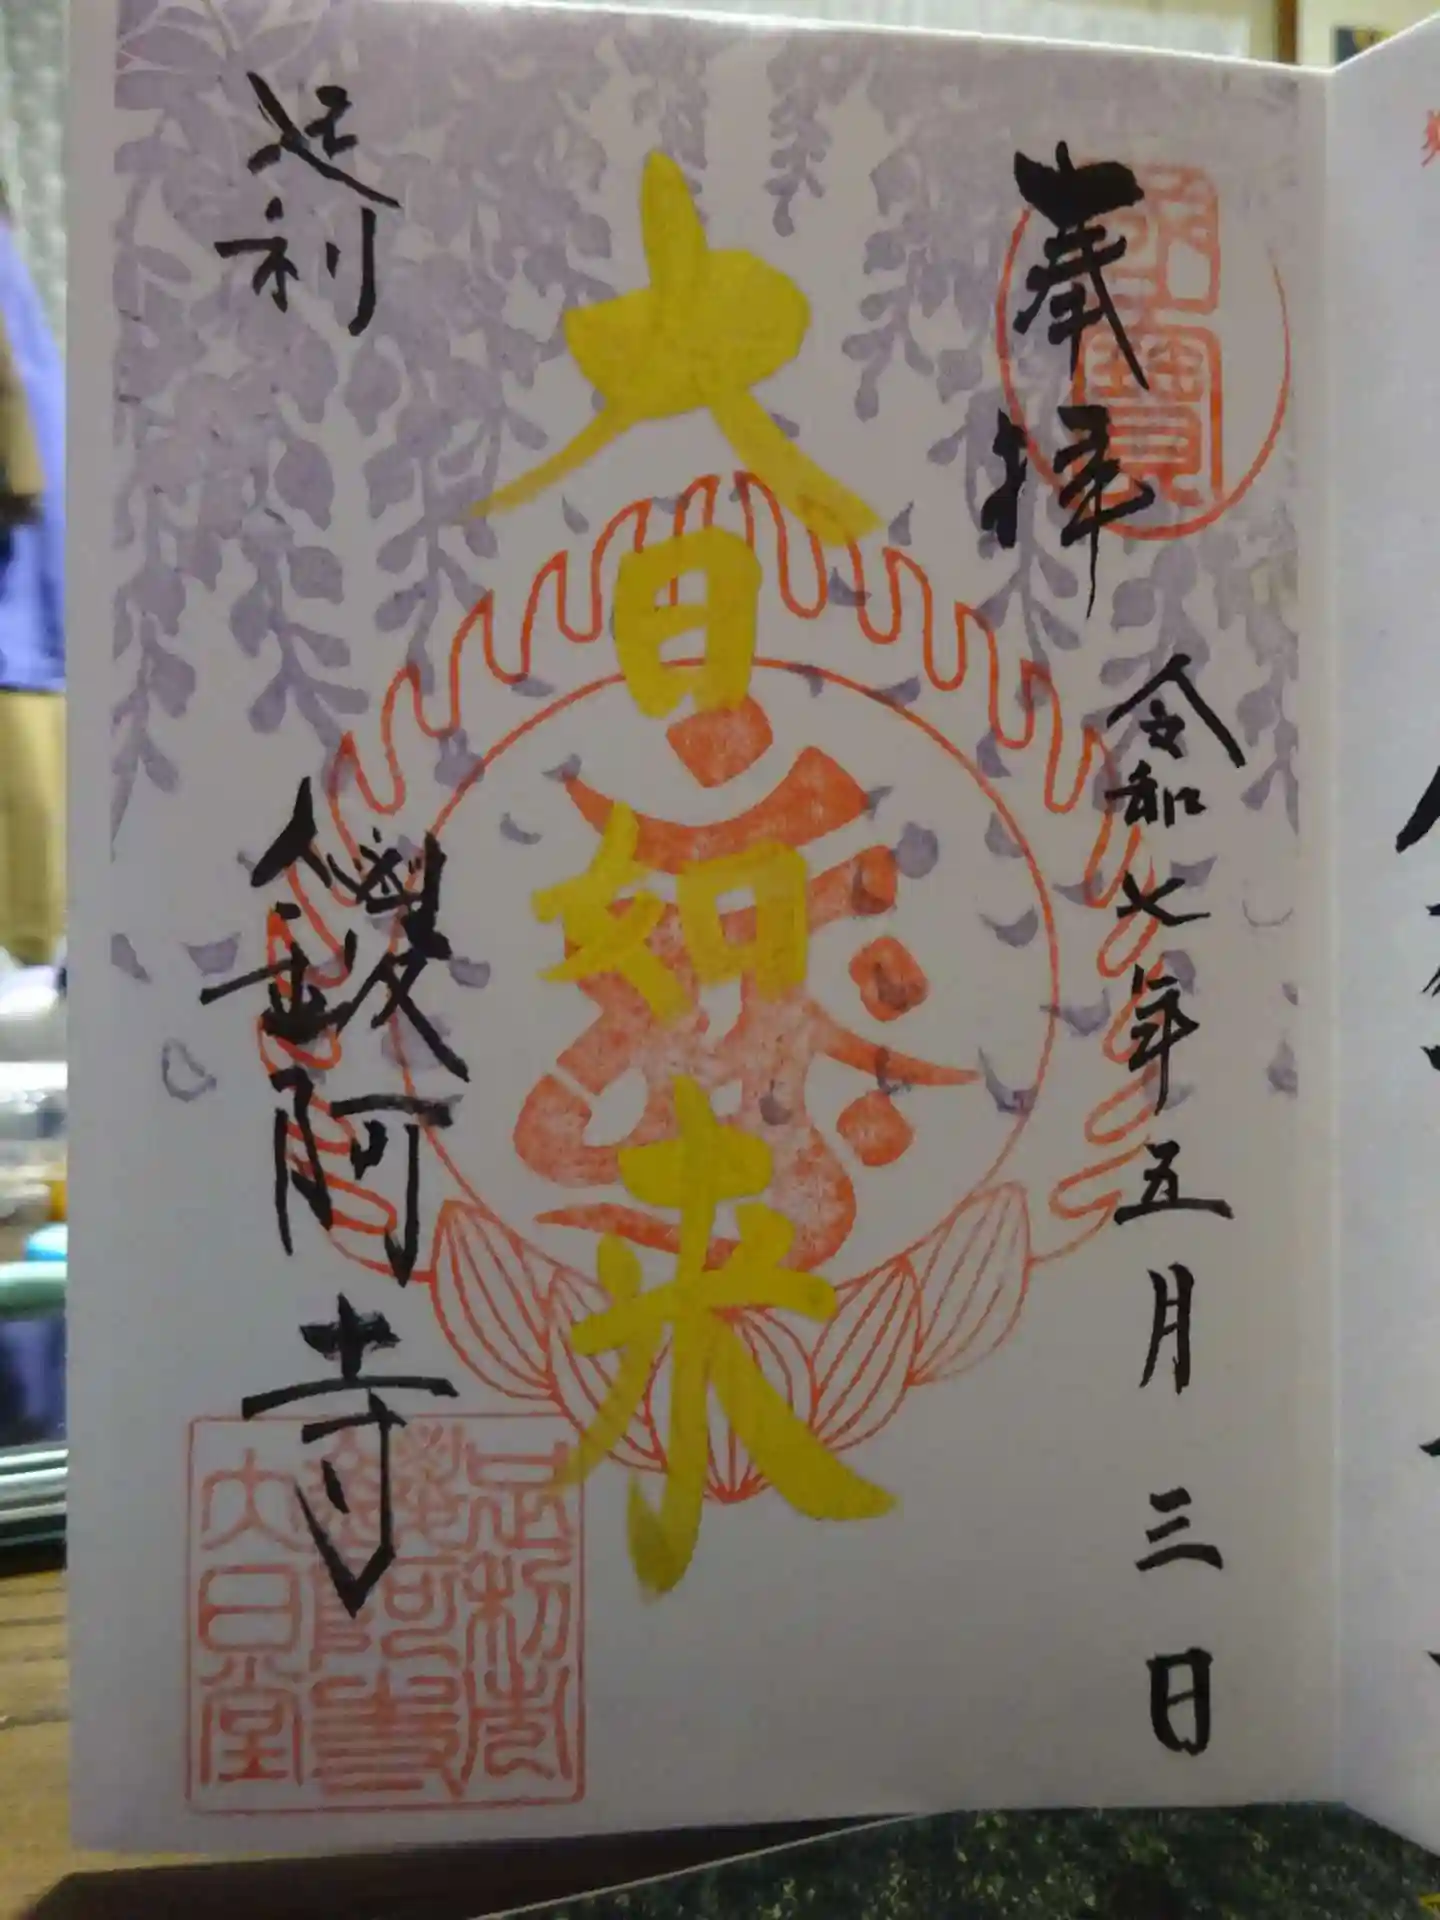 奉拝
令和七年五月三日
大日如来
足利
鑁阿寺
足利市
鑁阿寺
大日堂